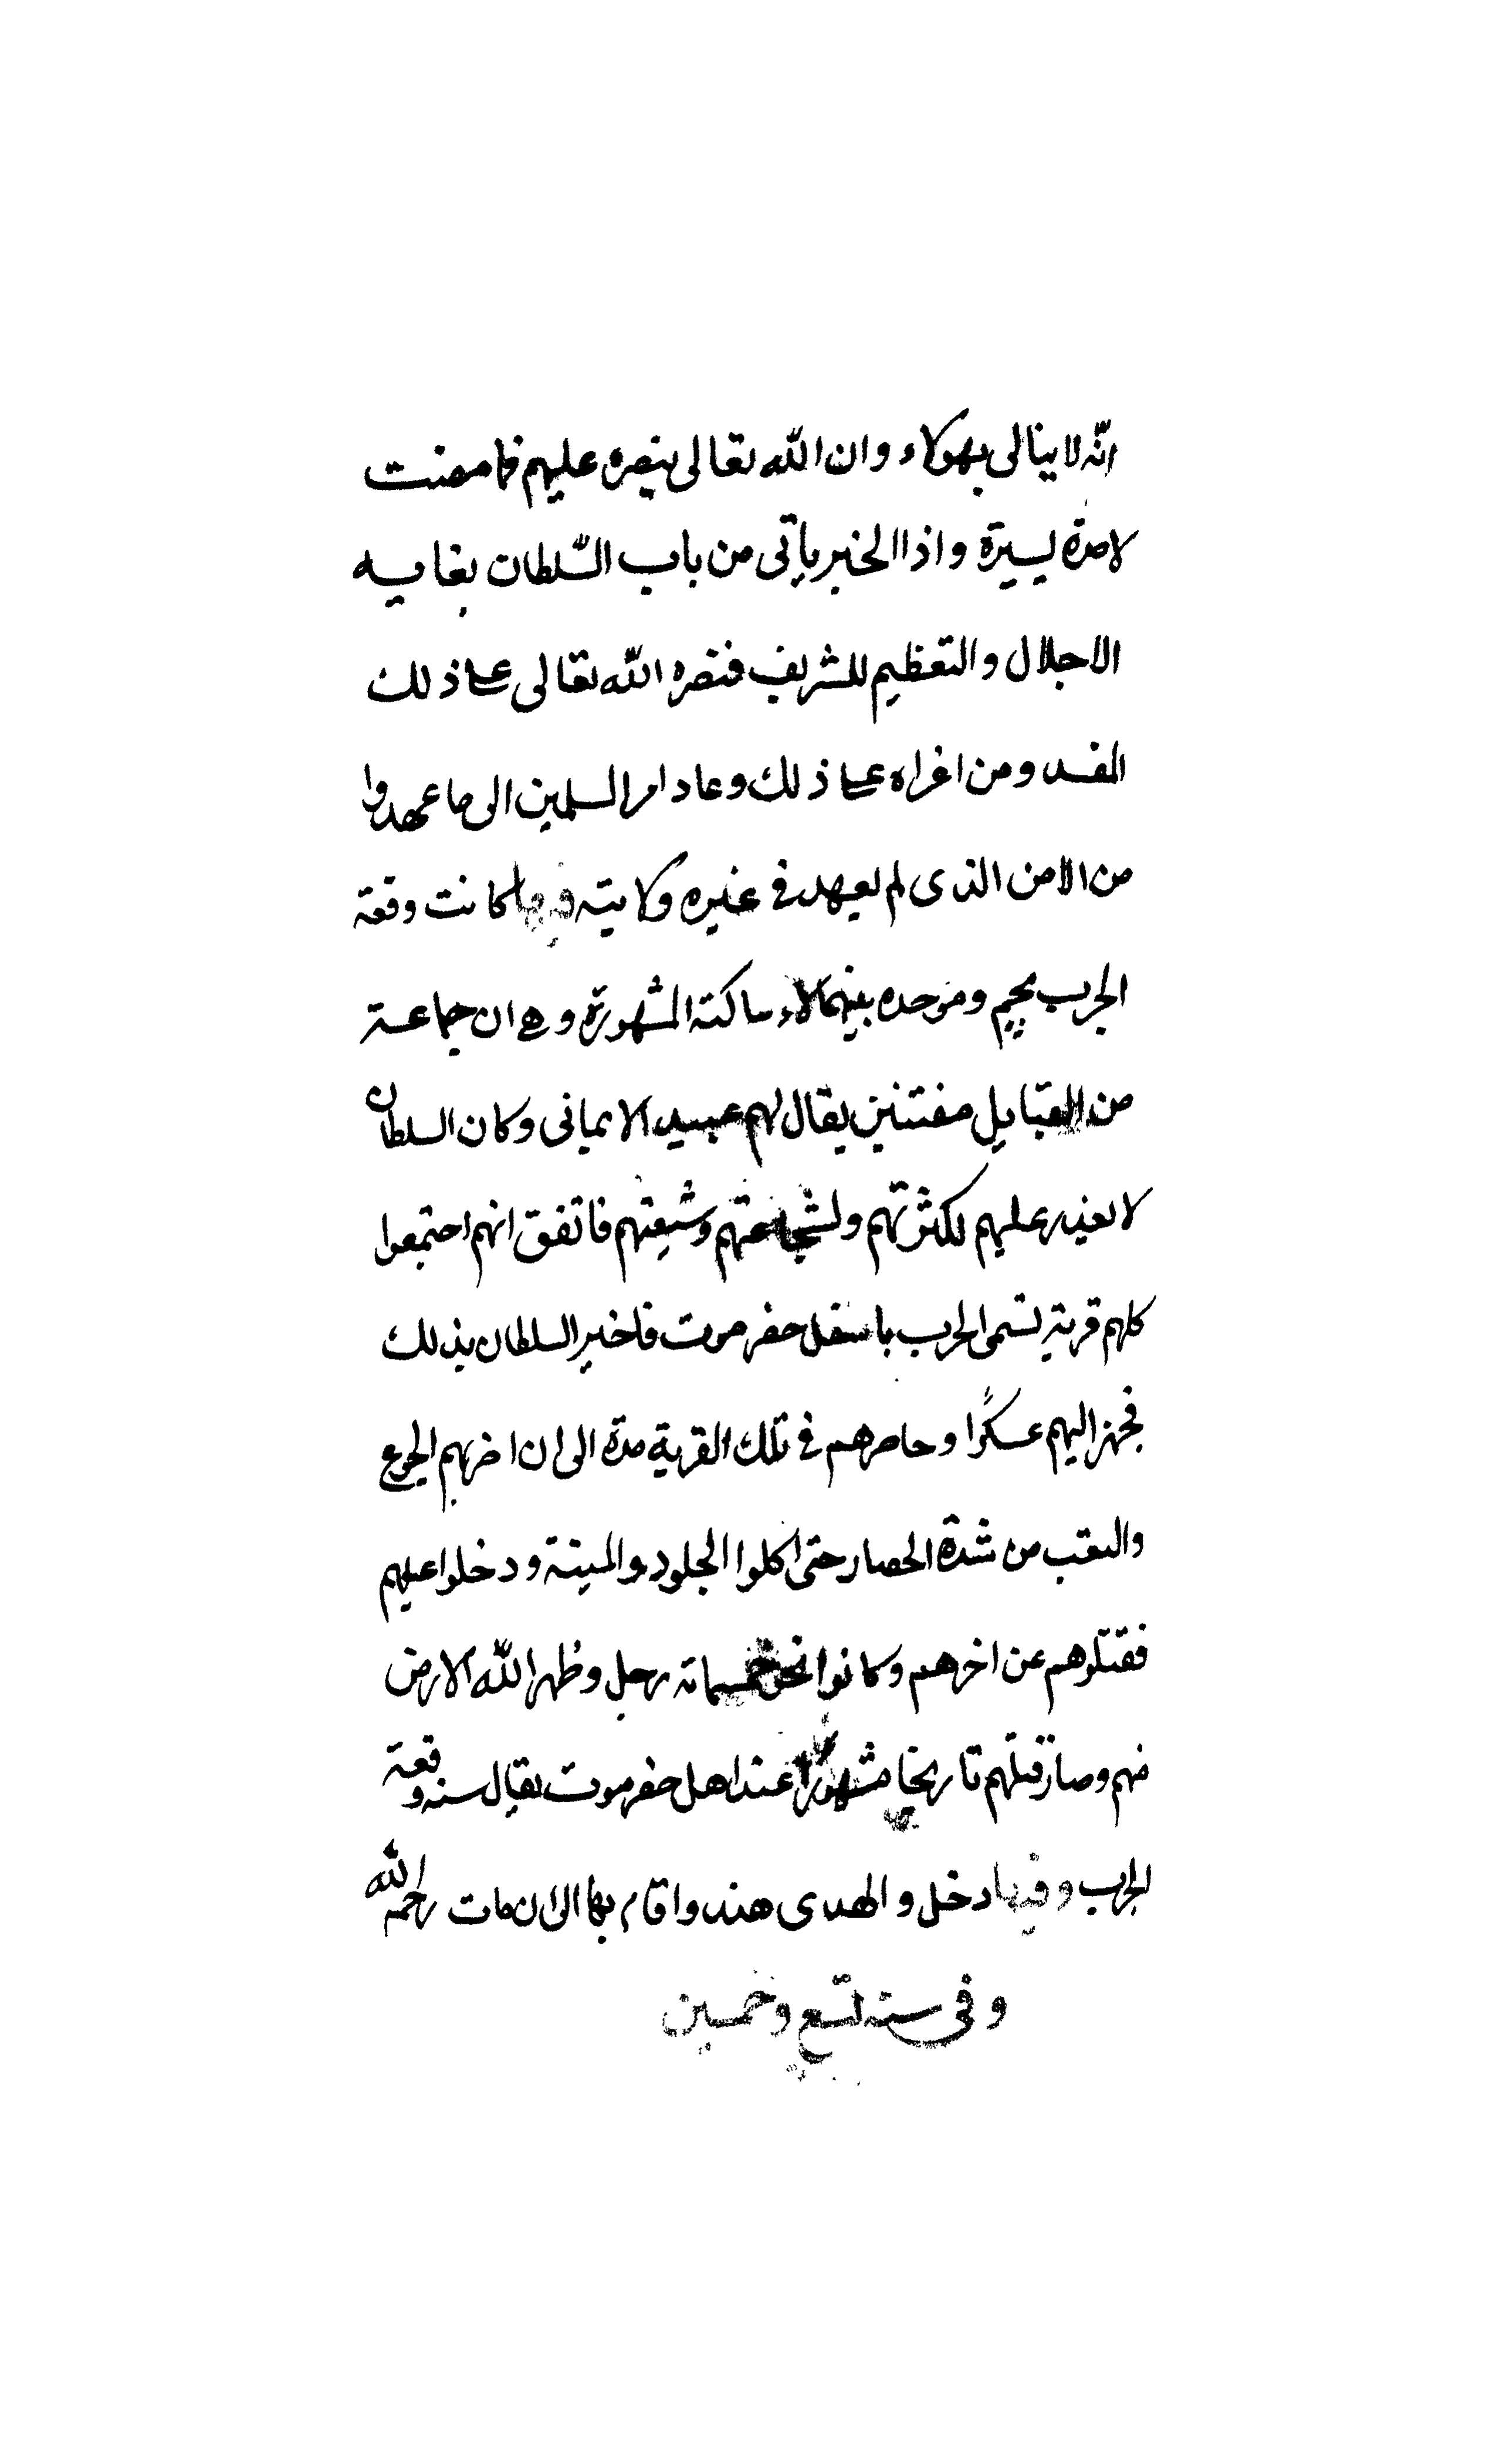 انّه لا ينالى بهولاء وان الله تعالى ينصره عليهم فما مضت
لا مدة يسيرة واذا الخبر ياتى من باب السّلطان بغايه
الاجلال والتعظيم للشريف فنصره الله تعالى على ذلك
المفسد ومن اغراه على ذلك وعاد امر المسلمين الى ما عهدوا
من الامن الذى لم يعهد فى غيره ولايته وفيها كانت وقعة
الجرب بجيم وموحده بينهما راء ساكنة المشهورة وهى ان جماعة
من القبايل مفتنين يقال لهم عبيد الايمانى وكان السلطان
لا يقدر عليهم لكثرتهم ولشجاعتهم وشيعتهم فاتفق انهم اجتمعوا
كلهم قرية تسمى الجرب باسفل حضرموت فاخبر السلطان بذلك
فجهز اليهم عسكرًا وحاصرهم فى تلك القرية مدة الى ان اضربهم الجوع
والتعب من شدة الحصار حتى اكلوا الجلود والميتة ودخلوا عليهم
فقتلوهم عن اخرهم وكانوا نحو خمسماىة رجل وطهر الله الارض
منهم وصار قتلهم تاريخا مشهورا عند اهل حضرموت يقال سنه وقعة
الجرب وفيها دخل والهدى هند واقام بها الى ان مات رحمه الله
وفى سنة تسع وخمسين